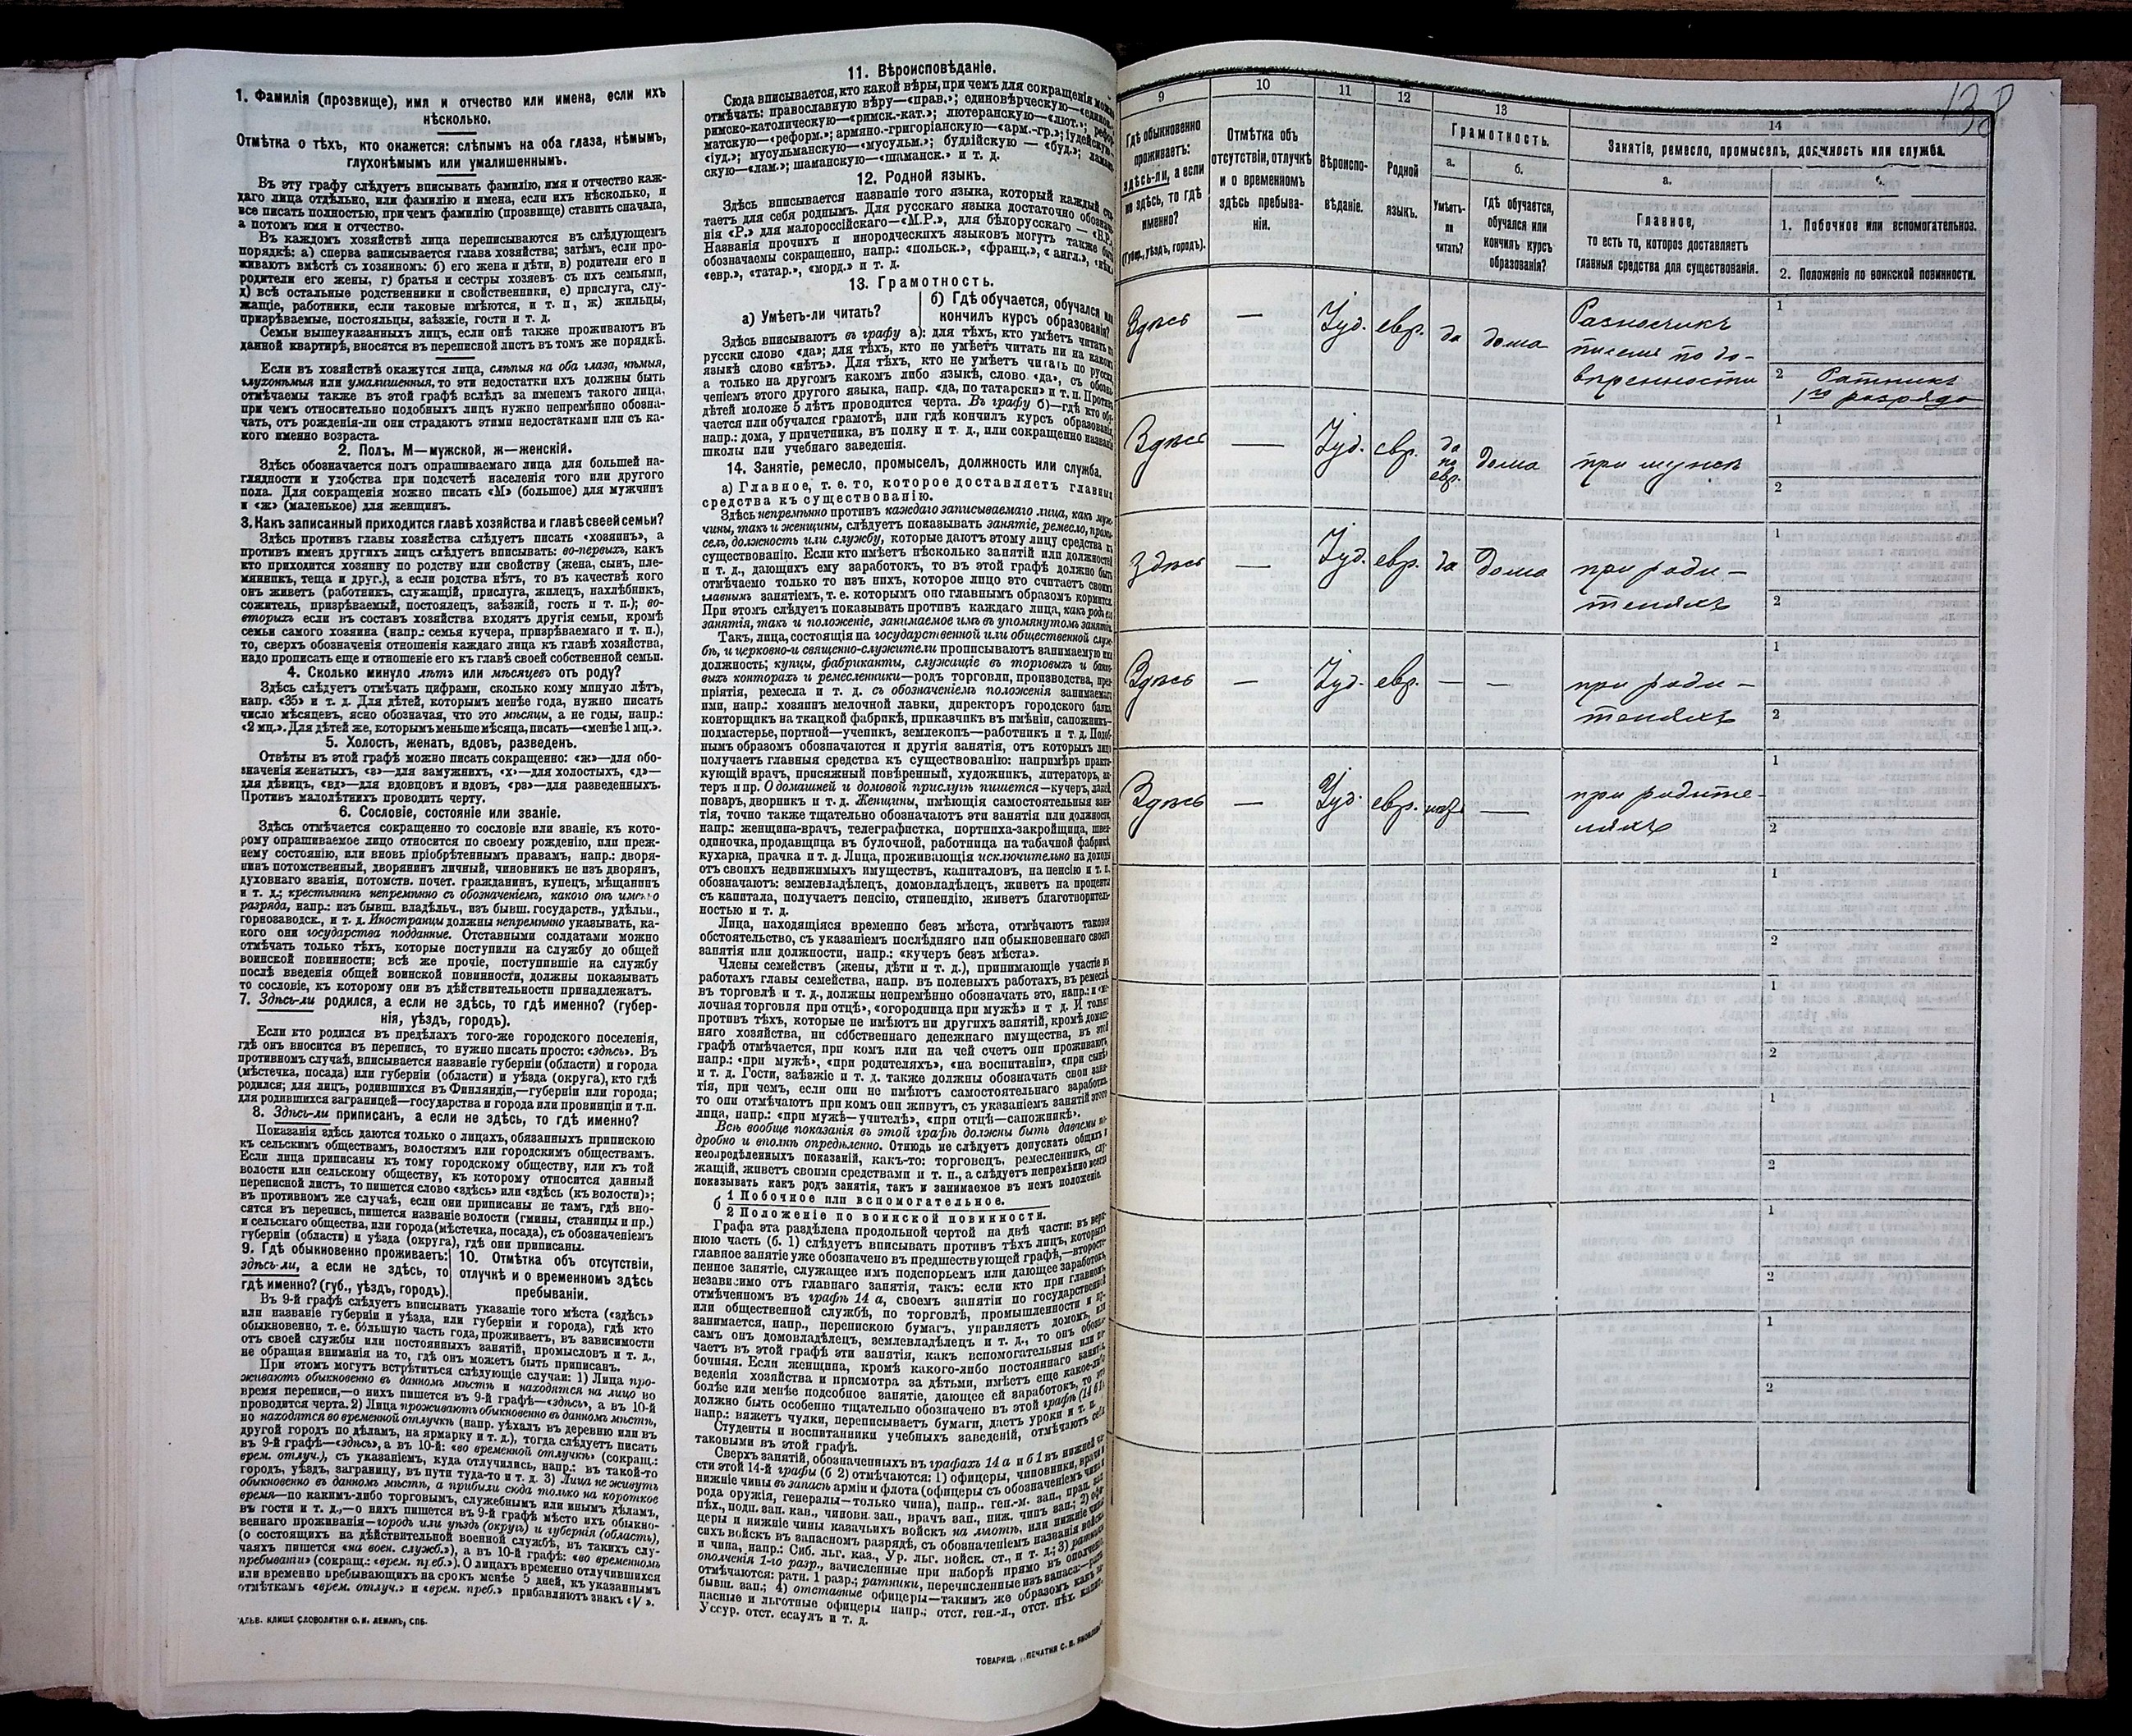 1. Фамилія (прозвище), имя и отчество или имена, если ихъ
нѣсколько.
Отмѣтка о тѣхъ, кто окажется: слѣпымъ на оба глаза, нѣмымъ,
глухонѣмымъ или умалишеннымъ.
Въ эту графу слѣдуетъ вписывать фамилію, имя и отчество каж-
даго лица отдѣльно, или фамилію и имена, если ихъ нѣсколько, и
все писать полностью, при чемъ фамилію (прозвище) ставить сначала,
а потомъ имя и отчество.
Въ каждомъ хозяйствѣ лица переписываются въ слѣдующемъ
порядкѣ: а) сперва записывается глава хозяйства; затѣмъ, если про-
живаютъ вмѣстѣ съ хозяиномъ: б) его жена и дѣти, в) родители его и
родители его жены, г) братья и сестры хозяевъ съ ихъ семьями,
д) всѣ остальные родственники и свойственники, е) прислуга, слу-
жащіе, работники, если таковые имѣются, и т. п, ж) жильцы,
призрѣваемые, постояльцы, заѣзжіе, гости и т. д.
Семьи вышеуказанныхъ лицъ, если онѣ также проживаютъ въ
данной квартирѣ, вносятся въ переписной листъ въ томъ же порядкѣ.
Если въ хозяйствѣ окажутся лица, слѣпыя на оба глаза, нѣмыя,
глухонѣмыя или умалишенныя, то эти недостатки ихъ должны быть
отмѣчаемы также въ этой графѣ вслѣдъ за именемъ такого лица,
при чемъ относительно подобныхъ лицъ нужно непремѣнно обозна-
чать, отъ рожденія-ли они страдаютъ этими недостатками или съ ка-
кого именно возраста.
2. Полъ. М—мужской, ж—женскій.
Здѣсь обозначается полъ опрашиваемаго лица для большей на-
глядности и удобства при подсчетѣ населенія того или другого
пола. Для сокращенія можно писать «М» (большое) для мужчинъ
и «ж» (маленькое) для женщинъ.
3. Какъ записанный приходится главѣ хозяйства и главѣ своей семьи?
Здѣсь противъ главы хозяйства слѣдуетъ писать «хозяинъ», а
противъ именъ другихъ лицъ слѣдуетъ вписывать: во-первыхъ, какъ
кто приходится хозяину по родству или свойству (жена, сынъ, пле-
мянникъ, теща и друг.), а если родства нѣтъ, то въ качествѣ кого
онъ живетъ (работникъ, служащій, прислуга, жилецъ, нахлѣбникъ,
сожитель, призрѣваемый, постоялецъ, заѣзжій, гость и т. п.); во-
вторыхъ если въ составъ хозяйства входятъ другія семьи, кромѣ
семьи самого хозяина (напр.: семья кучера, призрѣваемаго и т. п.),
то, сверхъ обозначенія отношенія каждаго лица къ главѣ хозяйства,
надо прописать еще и отношеніе его къ главѣ своей собственной семьи.
4. Сколько минуло лѣтъ или мѣсяцевъ отъ роду?
Здѣсь слѣдуетъ отмѣчать цифрами, сколько кому минуло лѣтъ,
напр. «35» и т. д. Для дѣтей, которымъ менѣе года, нужно писать
число мѣсяцевъ, ясно обозначая, что это мѣсяцы, а не годы, напр.:
«2 мц.». Для дѣтей же, которымъ меньше мѣсяца, писать—«менѣе 1 мц.».
5. Холостъ, женатъ, вдовъ, разведенъ.
Отвѣты въ этой графѣ можно писать сокращенно: «ж»—для обо-
значенія женатыхъ, «з»—для замужнихъ, «х»—для холостыхъ, «д»—
для дѣвицъ, «вд»—для вдовцовъ и вдовъ, «рз»—для разведенныхъ.
Противъ малолѣтнихъ проводить черту.
6. Сословіе, состояніе или званіе.
Здѣсь отмѣчается сокращенно то сословіе или званіе, къ кото-
рому опрашиваемое лицо относится по своему рожденію, или преж-
нему состоянію, или вновь пріобрѣтеннымъ правамъ, напр.: дворя-
нинъ потомственный, дворянинъ личный, чиновникъ не изъ дворянъ,
духовнаго званія, потомств. почет. гражданинъ, купецъ, мѣщанинъ
и т. д.; крестьянинъ непремѣнно съ обозначеніемъ, какого онъ именно
разряда, напр.: изъ бывш. владѣльч., изъ бывш. государств., удѣльн.,
горнозаводск., и т. д. Иностранцы должны непремѣнно указывать, ка-
кого они государства подданные. Отставными солдатами можно
отмѣчать только тѣхъ, которые поступили на службу до общей
воинской повинности; всѣ же прочіе, поступившіе на службу
послѣ введенія общей воинской повинности, должны показывать
то сословіе, къ которому они въ дѣйствительности принадлежатъ.
7. Здѣсь-ли родился, а если не здѣсь, то гдѣ именно? (губер-
нія, уѣздъ, городъ).
Если кто родился въ предѣлахъ того-же городского поселенія,
гдѣ онъ вносится въ перепись, то нужно писать просто: «здѣсь». Въ
противномъ случаѣ, вписывается названіе губерніи (области) и города
(мѣстечка, посада) или губерніи (области) и уѣзда (округа), кто гдѣ
родился; для лицъ, родившихся въ Финляндіи,—губерніи или города;
для родившихся заграницей—государства и города или провинціи и т.п.
8. Здѣсь-ли приписанъ, а если не здѣсь, то гдѣ именно?
Показанія здѣсь даются только о лицахъ, обязанныхъ припискою
къ сельскимъ обществамъ, волостямъ или городскимъ обществамъ.
Если лица приписаны къ тому городскому обществу, или къ той
волости или сельскому обществу, къ которому относится данный
переписной листъ, то пишется слово «здѣсь» или «здѣсь (къ волости)»;
въ противномъ же случаѣ, если они приписаны не тамъ, гдѣ вно-
сятся въ перепись, пишется названіе волости (гмины, станицы и пр.)
и сельскаго общества, или города (мѣстечка, посада), съ обозначеніемъ
губерніи (области) и уѣзда (округа), гдѣ они приписаны.
9. Гдѣ обыкновенно проживаетъ:
здѣсь-ли, а если не здѣсь, то
гдѣ именно? (губ., уѣздъ, городъ).
10. Отмѣтка объ отсутствіи,
отлучкѣ и о временномъ здѣсь
пребываніи.
Въ 9-й графѣ слѣдуетъ вписывать указаніе того мѣста («здѣсь»
или названіе губерніи и уѣзда, или губерніи и города), гдѣ кто
обыкновенно, т. е. бо́льшую часть года, проживаетъ, въ зависимости
отъ своей службы или постоянныхъ занятій, промысловъ и т. д.,
не обращая вниманія на то, гдѣ онъ можетъ быть приписанъ.
При этомъ могутъ встрѣтиться слѣдующіе случаи: 1) Лица про-
живаютъ обыкновенно въ данномъ мѣстѣ и находятся на лицо во
время переписи,—о нихъ пишется въ 9-й графѣ—«здѣсь», а въ 10-й
проводится черта. 2) Лица проживаютъ обыкновенно въ данномъ мѣстѣ,
но находятся во временной отлучкѣ (напр. уѣхалъ въ деревню или въ
другой городъ по дѣламъ, на ярмарку и т. д.), тогда слѣдуетъ писать
въ 9-й графѣ—«здѣсь», а въ 10-й: «во временной отлучкѣ» (сокращ.:
врем. отлуч.), съ указаніемъ, куда отлучились, напр.: въ такой-то
городъ, уѣздъ, заграницу, въ пути туда-то и т. д. 3) Лица не живутъ
обыкновенно въ данномъ мѣстѣ, а прибыли сюда только на короткое
время—по какимъ-либо торговымъ, служебнымъ или инымъ дѣламъ,
въ гости и т. д.,—о нихъ пишется въ 9-й графѣ мѣсто ихъ обыкно-
веннаго проживанія—городъ или уѣздъ (округъ) и губернія (область),
(о состоящихъ на дѣйствительной военной службѣ, въ такихъ слу-
чаяхъ пишется «на воен. служб.»), а въ 10-й графѣ: «во временномъ
пребываніи» (сокращ.: «врем. преб.»). О лицахъ временно отлучившихся
или временно пребывающихъ на срокъ менѣе 5 дней, къ указаннымъ
отмѣткамъ «врем. отлуч.» и «врем. преб.» прибавляютъ знакъ «V».
ГАЛЬВ. КЛИШЕ СЛОВОЛИТНИ О. И. ЛЕМАНЪ, СПБ.
11. Вѣроисповѣданіе.
Сюда вписывается, кто какой вѣры, при чемъ для сокращенія можно
отмѣчать: православную вѣру—«прав.»; единовѣрческую—«единов.»;
римско-католическую—«римск.-кат.»; лютеранскую—«лют.»; рефор-
матскую—«реформ.»; армяно.-григоріанскую—«арм.-гр.»; іудейскую—
«іуд.»; мусульманскую—«мусульм.»; буддійскую — «буд.»; ламай-
скую—«лам.»; шаманскую—«шаманск.» и т. д.
12. Родной языкъ.
Здѣсь вписывается названіе того языка, который каждый счи-
таетъ для себя роднымъ. Для русскаго языка достаточно обозначе-
нія «Р.» для малороссійскаго—«М.Р.», для бѣлорусскаго — «Б.Р.»
Названія прочихъ и инородческихъ языковъ могутъ также быть
обозначаемы сокращенно, напр.: «польск.», «франц.», «англ.», «нѣм.»
«евр.», «татар.», «морд.» и т. д.
13. Грамотность.
а) Умѣетъ-ли читать?
б) Гдѣ обучается, обучался или
кончилъ курсъ образованія?
Здѣсь вписываютъ въ графу а): для тѣхъ, кто умѣетъ читать по
русски слово «да»; для тѣхъ, кто не умѣетъ читать ни на какомъ
языкѣ слово «нѣтъ». Для тѣхъ, кто не умѣетъ читать по русски,
а только на другомъ какомъ либо языкѣ, слово «да», съ обозна-
ченіемъ этого другого языка, напр. «да, по татарски» и т. п. Противъ
дѣтей моложе 5 лѣтъ проводится черта. Въ графу б)—гдѣ кто обу-
чается или обучался грамотѣ, или гдѣ кончилъ курсъ образованія,
напр.: дома, у причетника, въ полку и т. д., или сокращенно названіе
школы или учебнаго заведенія.
14. Занятіе, ремесло, промыселъ, должность или служба.
а) Главное, т. е. то, которое доставляетъ главныя
средства къ существованію.
Здѣсь непремѣнно противъ каждаго записываемаго лица, какъ муж-
чины, такъ и женщины, слѣдуетъ показывать занятіе, ремесло, промы-
селъ, должность или службу, которые даютъ этому лицу средства къ
существованію. Если кто имѣетъ нѣсколько занятій или должностей
и т. д., дающихъ ему заработокъ, то въ этой графѣ должно быть
отмѣчаемо только то изъ нихъ, которое лицо это считаетъ своимъ
главнымъ занятіемъ, т. е. которымъ оно главнымъ образомъ кормится.
При этомъ слѣдуетъ показывать противъ каждаго лица, какъ родъ его
занятія, такъ и положеніе, занимаемое имъ въ упомянутомъ занятіи.
Такъ, лица, состоящія на государственной или общественной служ-
бѣ, и церковно-и священно-служители прописываютъ занимаемую ими
должность; купцы, фабриканты, служащіе въ торговыхъ и банко-
выхъ конторахъ и ремесленники—родъ торговли, производства, пред-
пріятія, ремесла и т. д. съ обозначеніемъ положенія занимаемаго
ими, напр.: хозяинъ мелочной лавки, директоръ городского банка,
конторщикъ на ткацкой фабрикѣ, приказчикъ въ имѣніи, сапожникъ—
подмастерье, портной—ученикъ, землекопъ—работникъ и т. д. Подоб-
нымъ образомъ обозначаются и другія занятія, отъ которыхъ лицо
получаетъ главныя средства къ существованію: напримѣръ практи-
кующій врачъ, присяжный повѣренный, художникъ, литераторъ, ак-
теръ и пр. О домашней и домовой прислугѣ пишется—кучеръ, лакей,
поваръ, дворникъ и т. д. Женщины, имѣющія самостоятельныя заня-
тія, точно также тщательно обозначаютъ эти занятія или должности,
напр.: женщина-врачъ, телеграфистка, портниха-закройщица, швея-
одиночка, продавщица въ булочной, работница на табачной фабрикѣ,
кухарка, прачка и т. д. Лица, проживающія исключительно на доходы
отъ своихъ недвижимыхъ имуществъ, капиталовъ, на пенсію и т. п.,
обозначаютъ: землевладѣлецъ, домовладѣлецъ, живетъ на проценты
съ капитала, получаетъ пенсію, стипендію, живетъ благотворитель-
ностью и т. д.
Лица, находящіяся временно безъ мѣста, отмѣчаютъ таковое
обстоятельство, съ указаніемъ послѣдняго или обыкновеннаго своего
занятія или должности, напр.: «кучеръ безъ мѣста».
Члены семействъ (жены, дѣти и т. д.), принимающіе участіе въ
работахъ главы семейства, напр. въ полевыхъ работахъ, въ ремеслѣ,
въ торговлѣ и т. д., должны непремѣнно обозначать это, напр.: «ме-
лочная торговля при отцѣ», «огородница при мужѣ» и т. д. И только
противъ тѣхъ, которые не имѣютъ ни другихъ занятій, кромѣ домаш-
няго хозяйства, ни собственнаго денежнаго имущества, въ этой
графѣ отмѣчается, при комъ или на чей счетъ они проживаютъ,
напр.: «при мужѣ», «при родителяхъ», «на воспитаніи», «при сынѣ»
и т. д. Гости, заѣзжіе и т. д. также должны обозначать свои заня-
тія, при чемъ, если они не имѣютъ самостоятельнаго заработка,
то они отмѣчаютъ при комъ они живутъ, съ указаніемъ занятій этого
лица, напр.: «при мужѣ—учителѣ», «при отцѣ—сапожникѣ».
Всѣ вообще показанія въ этой графѣ должны быть даваемы по-
дробно и вполнѣ опредѣленно. Отнюдь не слѣдуетъ допускать общихъ и
неопредѣленныхъ показаній, какъ-то: торговецъ, ремесленникъ, слу-
жащій, живетъ своими средствами и т. п., а слѣдуетъ непремѣнно всегда
показывать какъ родъ занятія, такъ и занимаемое въ немъ положеніе.
б
1 Побочное или вспомогательное.
2 Положеніе по воинской повинности.
Графа эта раздѣлена продольной чертой на двѣ части: въ верх-
нюю часть (б. 1) слѣдуетъ вписывать противъ тѣхъ лицъ, которыхъ
главное занятіе уже обозначено въ предшествующей графѣ,—второсте-
пенное занятіе, служащее имъ подспорьемъ или дающее заработокъ,
независимо отъ главнаго занятія, такъ: если кто при главномъ,
отмѣченномъ въ графѣ 14 а, своемъ занятіи по государственной
или общественной службѣ, по торговлѣ, промышленности и пр.
занимается, напр., перепискою бумагъ, управляетъ домомъ, или
самъ онъ домовладѣлецъ, землевладѣлецъ и т. д., то онъ обозна-
чаетъ въ этой графѣ эти занятія, какъ вспомогательныя или по-
бочныя. Если женщина, кромѣ какого-либо постояннаго занятія,
веденія хозяйства и присмотра за дѣтьми, имѣетъ еще какое-либо
болѣе или менѣе подсобное занятіе, дающее ей заработокъ, то это
должно быть особенно тщательно обозначено въ этой графѣ (14 б 1),
напр.: вяжетъ чулки, переписываетъ бумаги, даетъ уроки и т. п.
Студенты и воспитанники учебныхъ заведеній, отмѣчаютъ себя
таковыми въ этой графѣ.
Сверхъ занятій, обозначенныхъ въ графахъ 14 а и б 1 въ нижней ча-
сти этой 14-й графы (б 2) отмѣчаются: 1) офицеры, чиновники, врачи и
нижніе чины въ запасѣ арміи и флота (офицеры съ обозначеніемъ чина и
рода оружія, генералы—только чина), напр.. ген.-м. зап., прап. зап.
пѣх., подп. зап. кав., чиновн. зап., врачъ зап., ниж. чинъ зап.; 2) офи-
церы и нижніе чины казачьихъ войскъ на льготѣ, или нижніе чины
сихъ войскъ въ запасномъ разрядѣ, съ обозначеніемъ названія войска
и чина, напр.: Сиб. льг. каз., Ур. льг. войск. ст., и т. д.; 3) ратники
ополченія 1-го разр., зачисленные при наборѣ прямо въ ополченіе
отмѣчаются: ратн. 1 разр.; ратники, перечисленные изъ запаса:—ратн.
бывш. зап.; 4) отставные офицеры—такимъ же образомъ какъ за-
пасные и льготные офицеры напр.; отст. ген.-л., отст. пѣх. капит.,
Уссур. отст. есаулъ и т. д.
ТОВАРИЩ. „ПЕЧАТНЯ С. П. ЯКОВЛЕВА"
138
9
10
11
12
13
14
Гдѣ обыкновенно
проживаетъ:
здѣсь-ли, а если
не здѣсь, то гдѣ
именно?
(Губер., уѣздъ, городъ).
Отмѣтка объ
отсутствіи, отлучкѣ
и о временномъ
здѣсь пребыва-
ніи.
Вѣроиспо-
вѣданіе.
Родной
языкъ.
Грамотность.
а.
Умѣетъ-
ли
читать?
б.
Гдѣ обучается,
обучался или
кончилъ курсъ
образованія?
Занятіе, ремесло, промыселъ, должность или служба.
а.
Главное,
то есть то, которое доставляетъ
главныя средства для существованія.
1. Побочное или вспомогательное.
2. Положеніе по воинской повинности.
Здѣсь — Іуд. евр. да дома
Разносчикъ
писемъ по до-
вѣренности
1
2 Ратникъ
1го разряда
Здѣсь — Іуд. евр. да
по
евр. дома при мужѣ
1
2
Здѣсь — Іуд. евр. да дома при роди-
теляхъ
1
2
Здѣсь — Іуд. евр. — — при роди-
теляхъ
1
2
Здѣсь — Іуд. евр. нѣтъ — при родите-
ляхъ
1
2
1
2
1
2
1
2
1
2
1
2